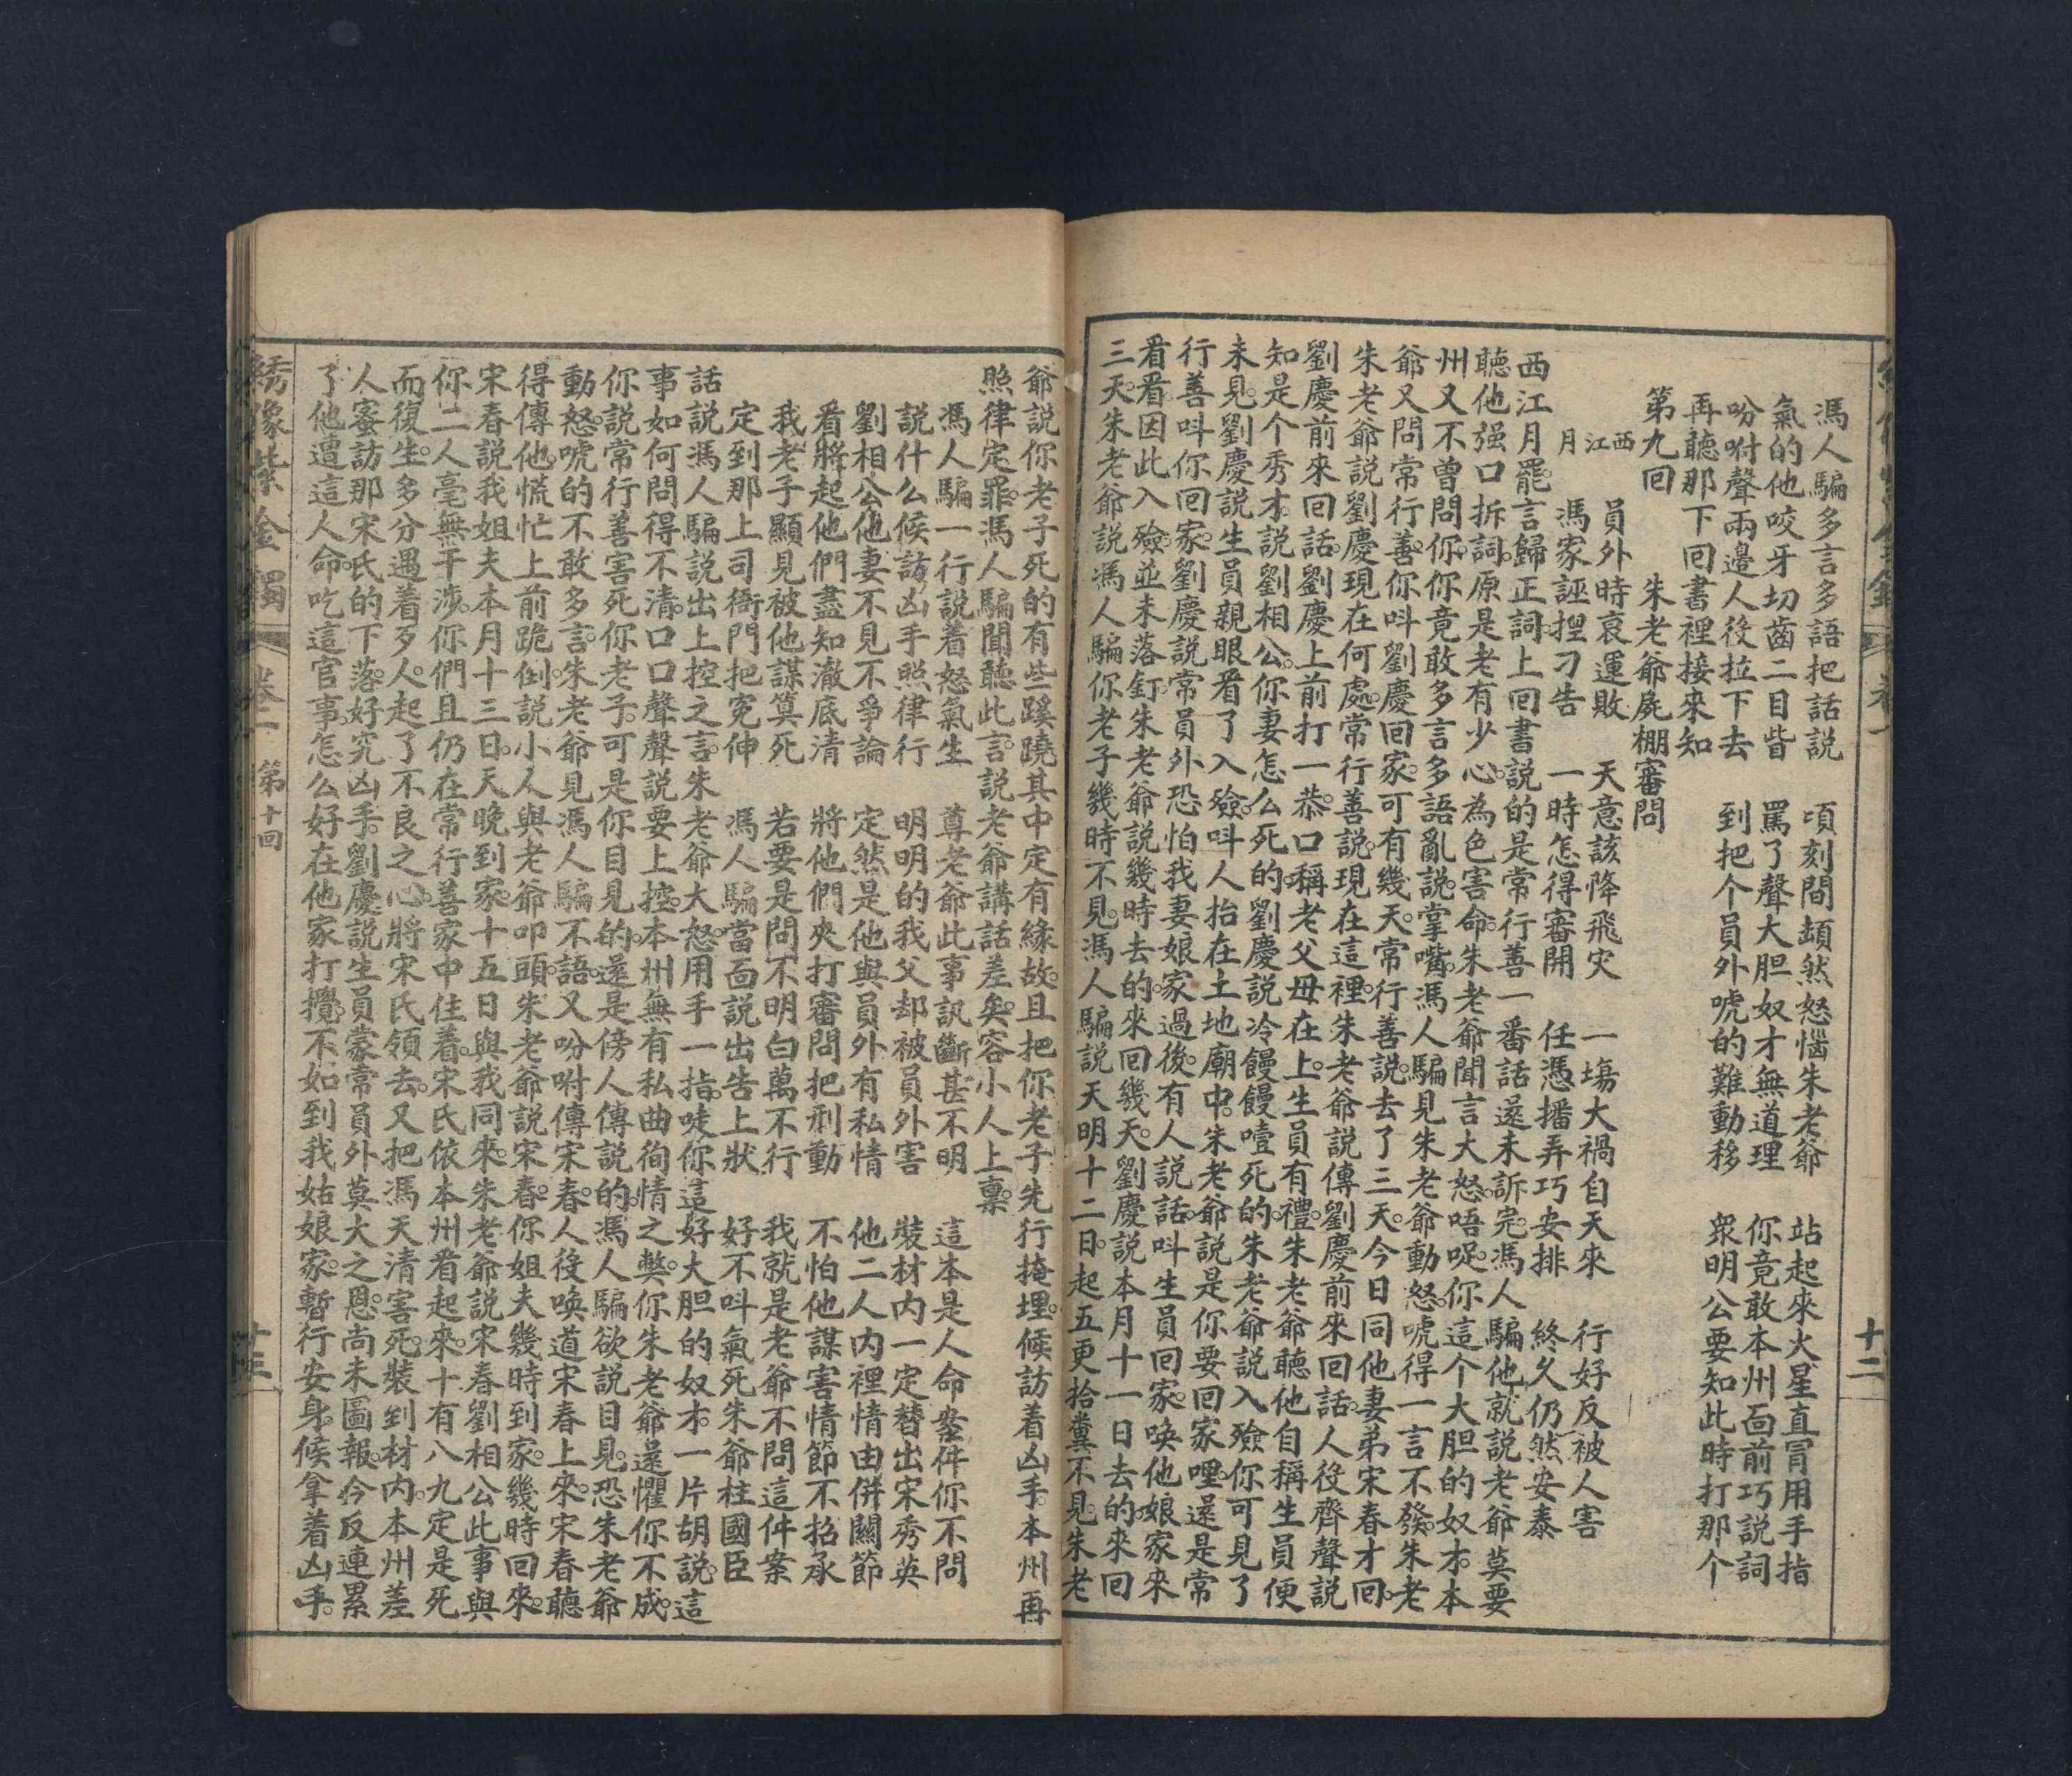 馮人騙多言多語把話説　頃刻間頡然怒惱朱老爺　站起來火星直冒用手指
氣的他咬牙切齒二目眥　罵了聲大胆奴才無道理　你竟敢本州面前巧説詞
吩咐聲兩邊人役拉下去　到把个員外唬的難動移　衆明公要知此時打那个
再聽那下回書裡接來知
第九回　朱老爺屍棚審問
西江月
員外時衰運敗　天意該降飛灾　一塲大禍自天來　行好反被人害
馮家誣揑刁告　一時怎得審開　任憑播弄巧安排　終久仍然安泰
西江月罷言歸正詞上回書説的是常行善一番話還未訴完馮人騙他就説老爺莫要
聽他强口拆詞原是老有少心為色害命朱老爺聞言大怒唔哫你這个大胆的奴才本
州又不曾問你你竟敢多言多語亂説掌嘴馮人騙見朱老爺動怒唬得一言不發朱老
爺又問常行善你呌劉慶回家可有幾天常行善説去了三天今日同他妻弟宋春才回
朱老爺説劉慶現在何處常行善説現在這裡朱老爺説傳劉慶前來回話人役齊聲説
劉慶前來回話劉慶上前打一恭口稱老父母在上生員有禮朱老爺聽他自稱生員便
知是个秀才説劉相公你妻怎么死的劉慶説冷饅饅噎死的朱老爺説入殮你可見了
未見劉慶説生員親眼看了入殮呌人抬在土地廟中朱老爺説是你要回家哩還是常
行善呌你回家劉慶説常員外恐怕我妻娘家過後有人説話呌生員回家唤他娘家來
看看因此入殮並未落釘朱老爺説幾時去的來回幾天劉慶説本月十一日去的來回
三天朱老爺説馮人騙你老子幾時不見馮人騙説天明十二日起五更拾糞不見朱老
十二
爺説你老子死的有些蹊蹺其中定有緣故且把你老子先行掩埋候訪着凶手本州再
照律定罪馮人騙聞聽此言説老爺講話差矣容小人上禀
馮人騙一行説着怒氣生　尊老爺此事訊斷甚不明　這本是人命案件你不問
説什么候訪凶手照律行　明明的我父却被員外害　裝材内一定替出宋秀英
劉相公他妻不見不爭論　定然是他與員外有私情　他二人内裡情由併關節
看將起他們盡知澈底清　將他們夾打審問把刑動　不怕他謀害情節不招承
我老子顯見被他謀算死　若要是問不明白萬不行　我就是老爺不問這件案
定到那上司衙門把冤伸　馮人騙當面説出告上狀　好不呌氣死朱爺柱國臣
話説馮人騙説出上控之言朱老爺大怒用手一指唗你這好大胆的奴才一片胡説這
事如何問得不清口口聲聲説要上控本州無有私曲徇情之獘你朱老爺還懼你不成
你説常行善害死你老子可是你目見的還是傍人傳説的馮人騙欲説目見恐朱老爺
動怒唬的不敢多言朱老爺見馮人騙不語又吩咐傳宋春人役唤道宋春上來宋春聽
得傳他慌忙上前跪倒説小人與老爺叩頭朱老爺説宋春你姐夫幾時到家幾時回來
宋春説我姐夫本月十三日天晚到家十五日與我同來朱老爺説宋春劉相公此事與
你二人毫無干涉你們且仍在常行善家中住着宋氏依本州看起來十有八九定是死
而復生多分遇着歹人起了不良之心將宋氏領去又把馮天清害死裝到材内本州差
人蜜訪那宋氏的下落好究凶手劉慶説生員蒙常員外莫大之恩尚未圖報今反連累
了他遭這人命吃這官事怎么好在他家打攪不如到我姑娘家暫行安身候拿着凶手
綉像紫金鐲　卷二　第十回　十三